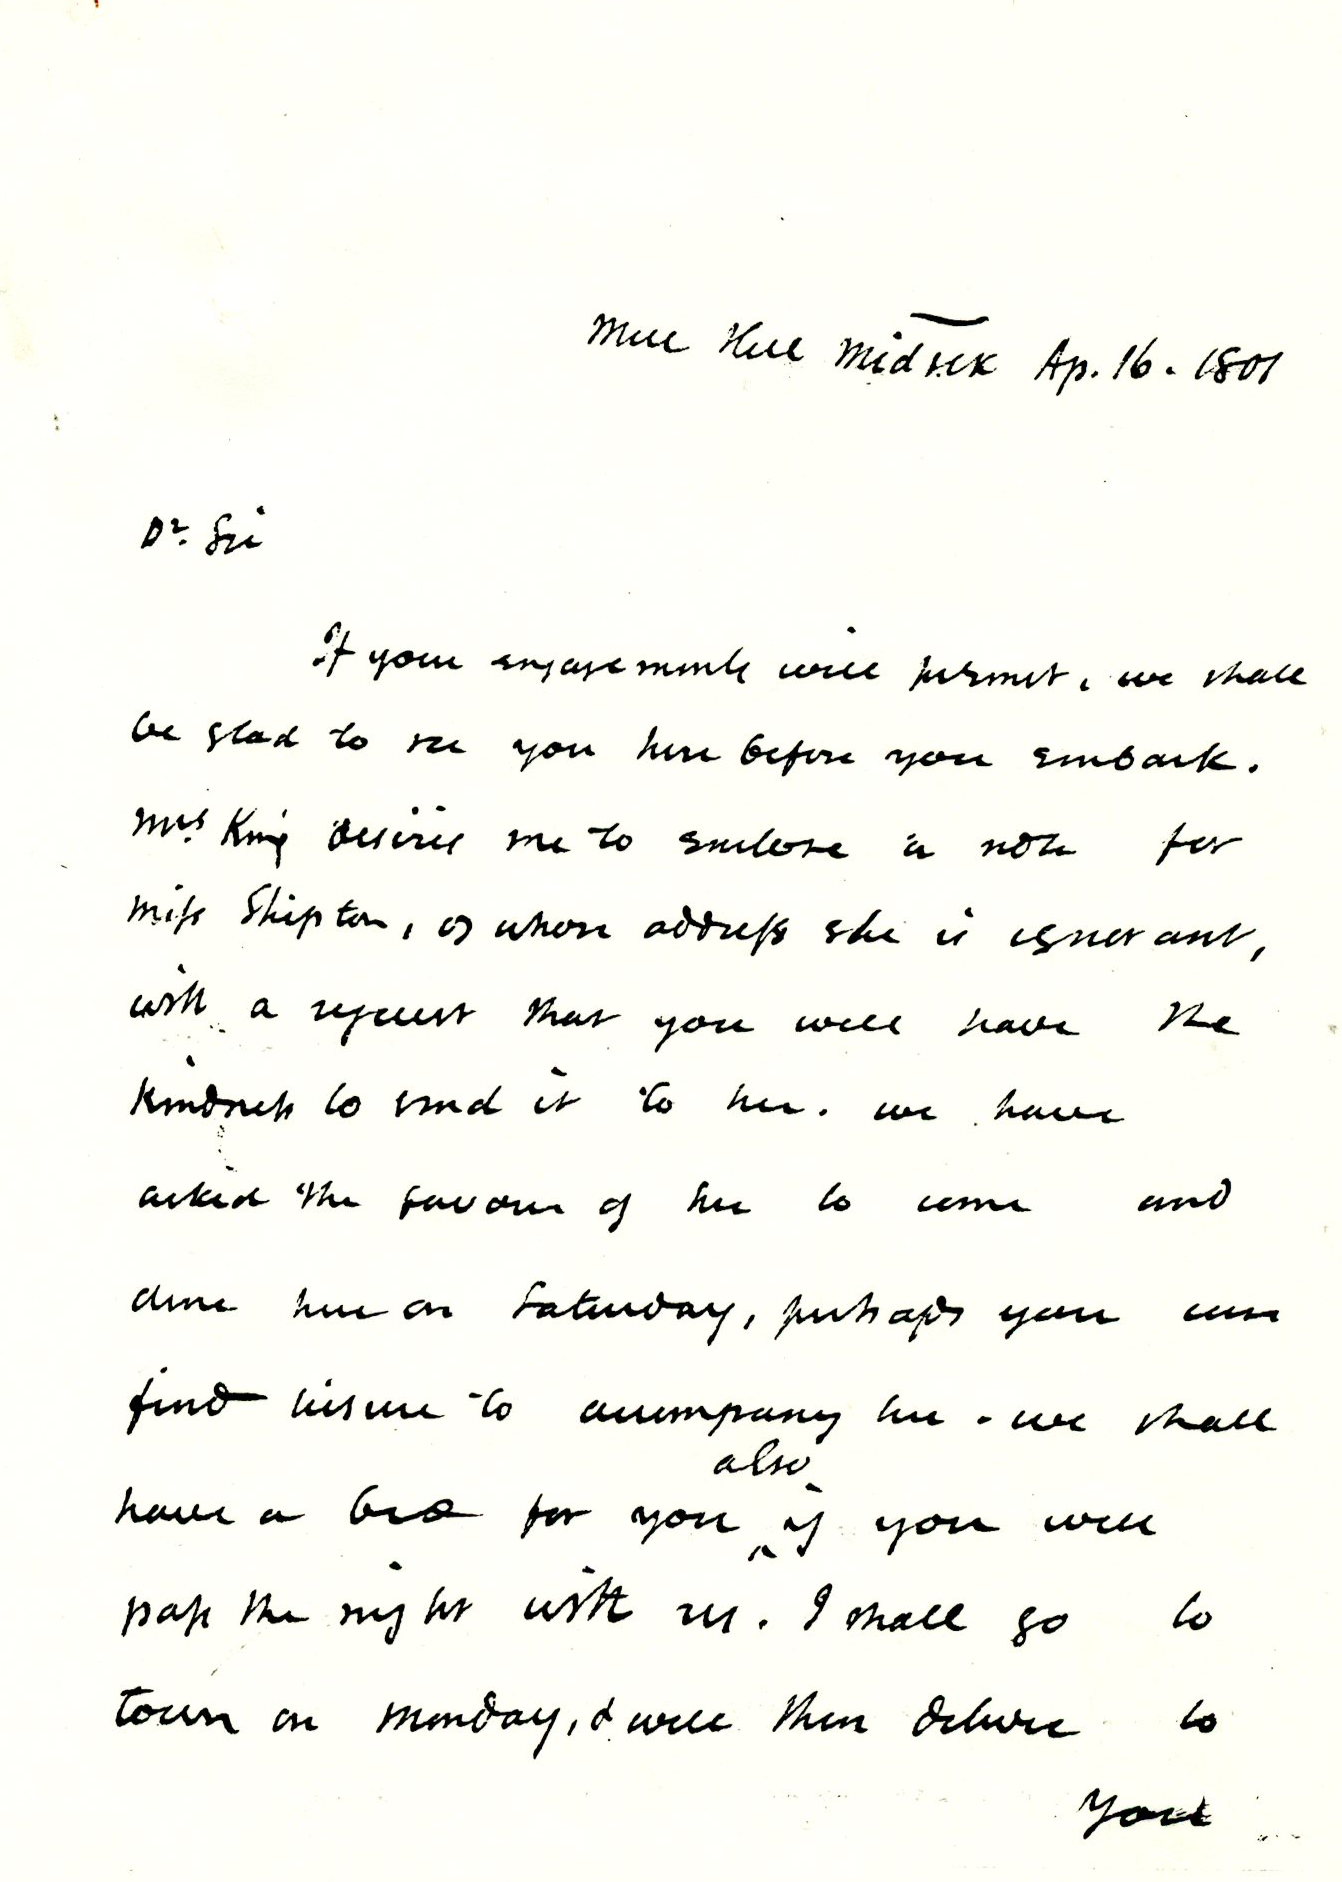 Mill Hill Midsex Ap. 16. 1801
Dr. Sir
If your engagements will permit, we shall
be glad to see you here before you embark.
Mrs. King desires me to enclose a note for
Miss Shipton, of whose address she is ignorant,
with a request that you will have the
kindness to send it to her. we have
asked the favour of her to come and
dine here on Saturday, perhaps you can
find leisure to accompany her. we shall
also
have a bed for you ‸ if you will
pass the night with us. I shall go to
town on Monday, & will then deliver to
you